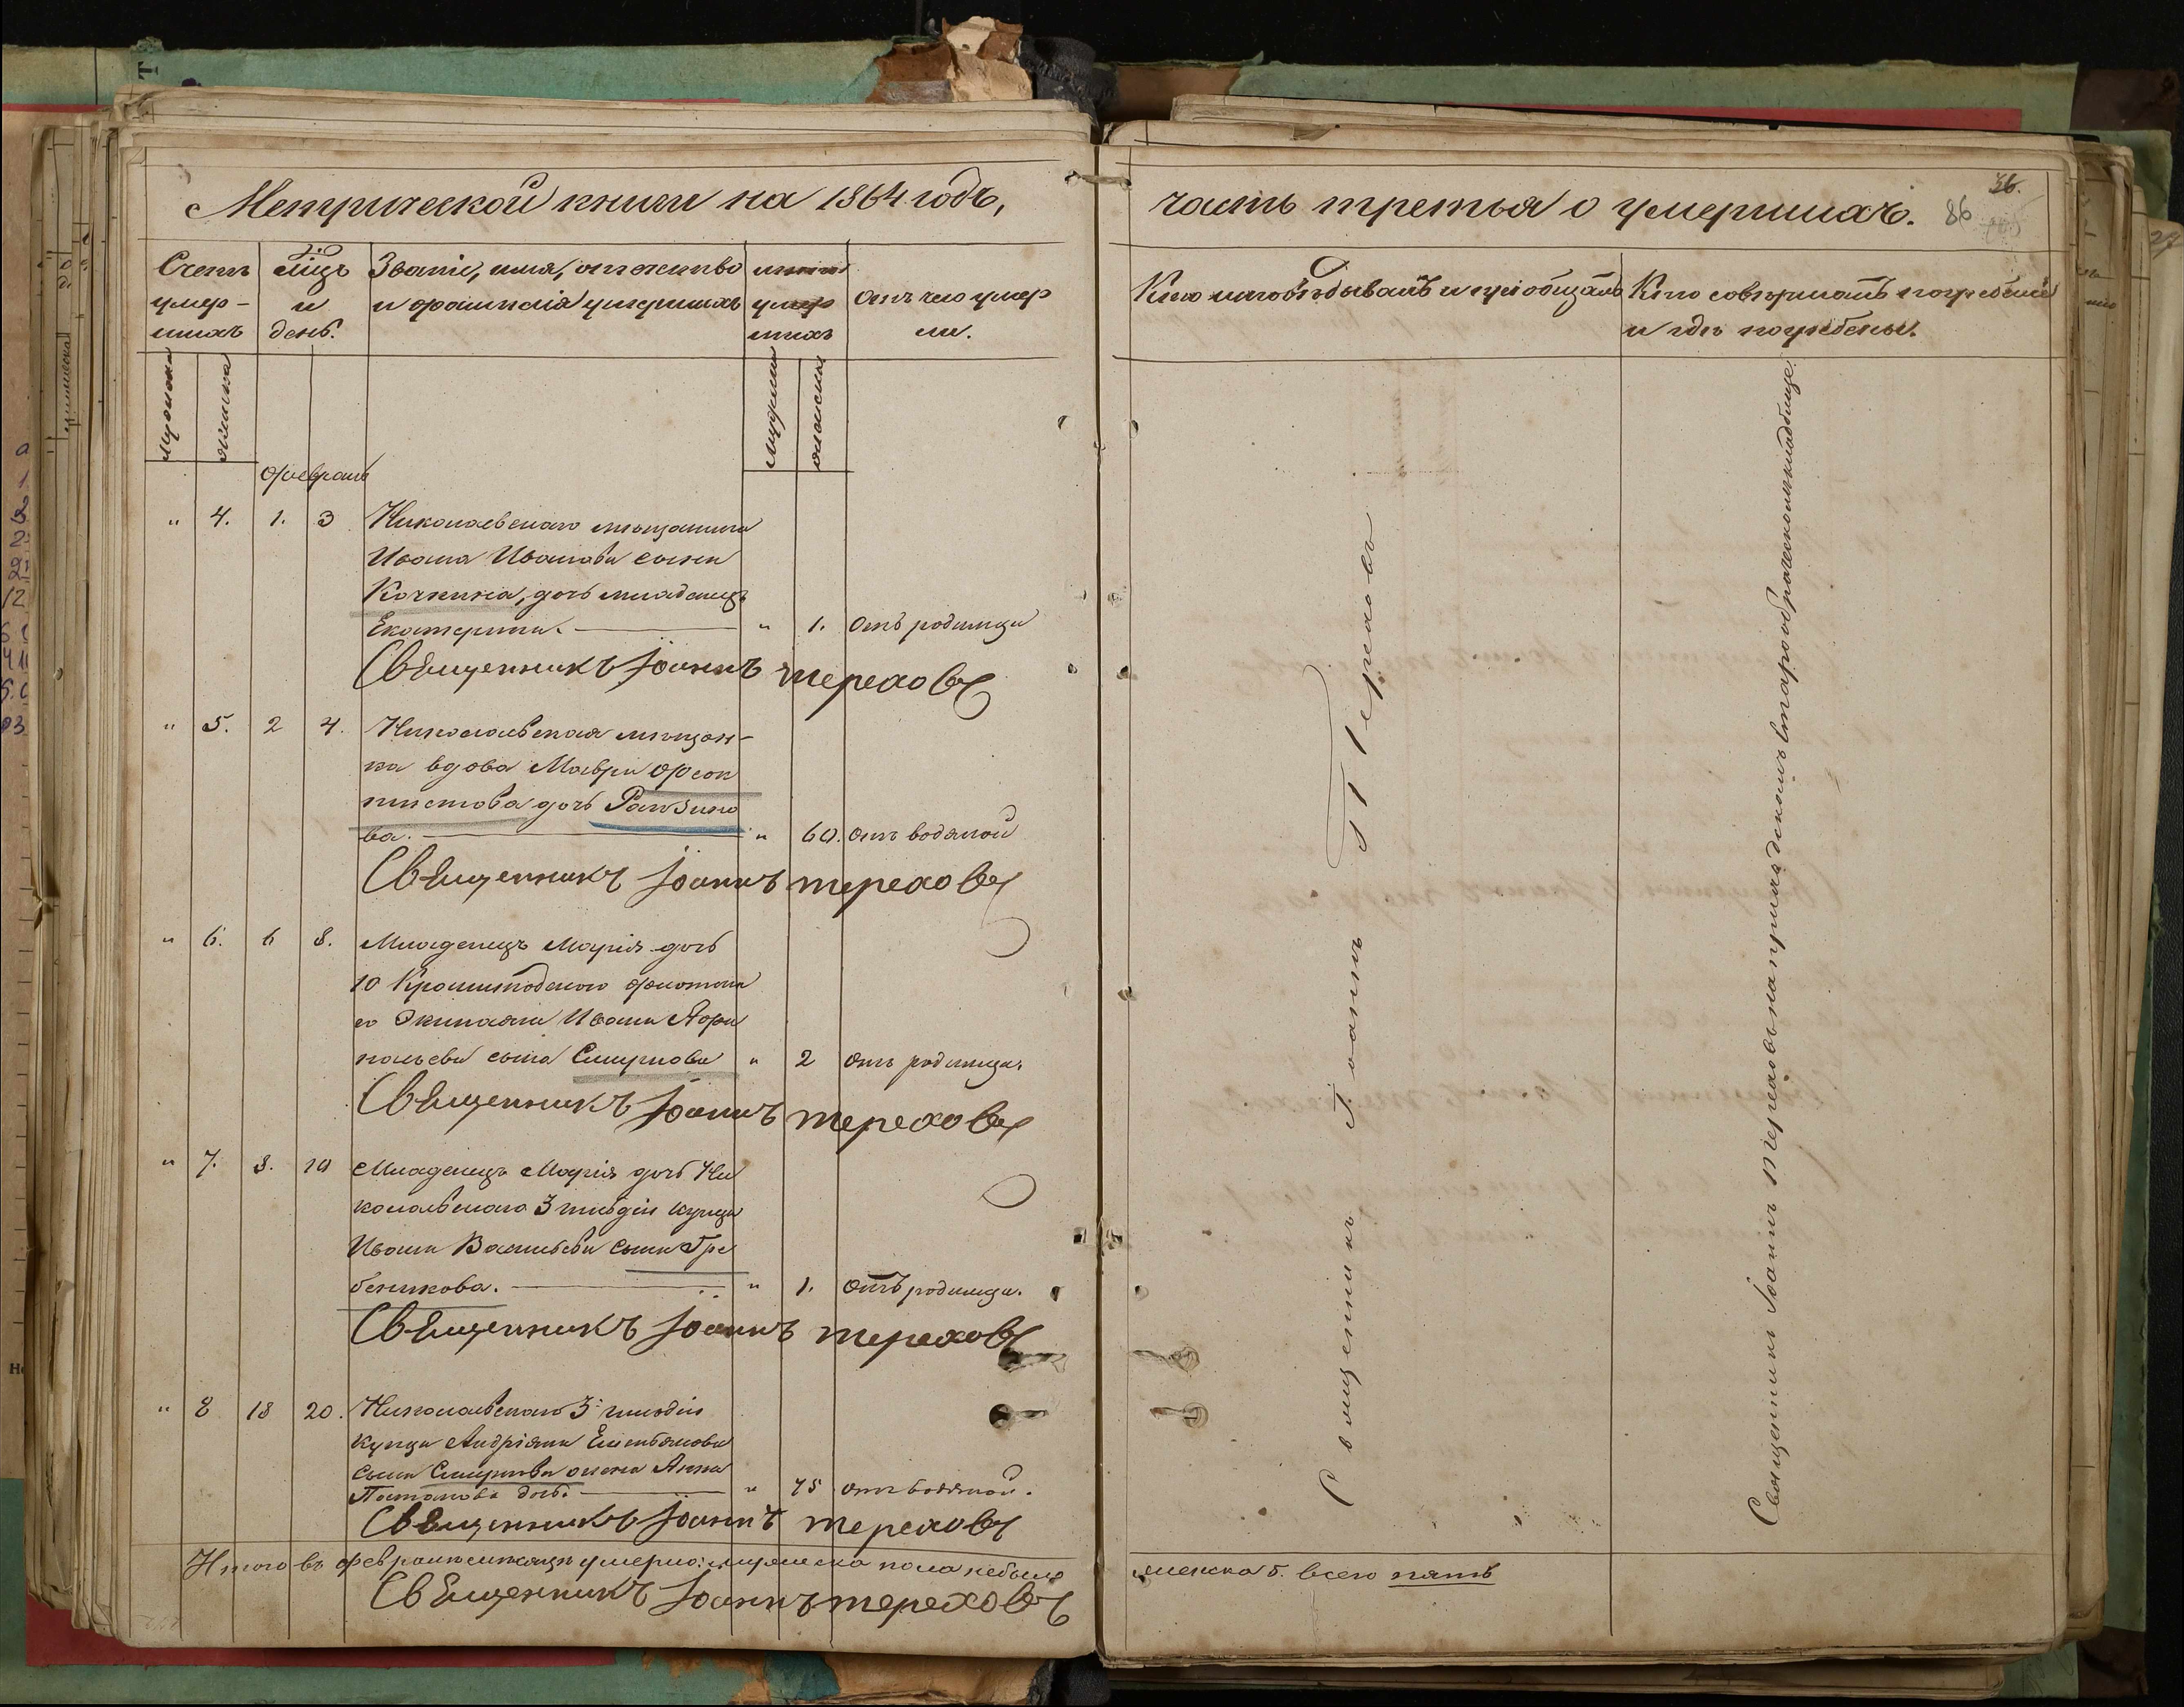 Метрической книги на 1864 годъ,
Счетъ умер-шихъ
Мѣсяцъ и день.
Званіе, имя, отчество и фамилія умершихъ
лѣта умершихъ
Отъ чего умерли.
мужеска
женска
мужеска
женска
февраль
" 4. 1. 3 Николаевскаго мѣщанина
Ивана Иванова сына
Кочкина, дочь младенецъ
Екатерина. " 1. Отъ родимца
Священникъ Іоаннъ Тереховъ
" 5. 2 4. Николаевская мѣщан-
ка вдова Мавра Феок
тистова дочь Ранзино
ва. " 60. отъ водяной
Священникъ Іоаннъ Тереховъ
" 6. 6 8. Младенецъ Марія дочь
10 Кронштадскаго флотска
го Экипажа Ивана
сына Смирнова " 2 отъ родимца.
Священникъ Іоаннъ Тереховъ
" 7. 8. 10 Младенецъ Марія дочь Ни
колаевскаго 3 гильдіи купца
Ивана Васильева сына Гре
бенкова. " 1. Отъ родимца.
Священникъ Іоаннъ Тереховъ
" 8 18 20. Николаевскаго 3й гильдіи
купца Андріяна Емельянова
сына Смирнова жена Анна
Потапова дочь. " 75 отъ водяной.
Священникъ Іоаннъ Тереховъ
Итого въ февралѣ мѣсяцѣ умерло: мужеска пола небыло
Священникъ Іоаннъ Тереховъ
часть третья о умершихъ.
36.
86
Кто исповѣдывалъ и пріобщалъ
Кто совершалъ погребеніе
и гдѣ погребены.
Священникъ Іоаннъ Тереховъ
Священникъ Іоаннъ Тереховъ на приходскомъ старообрядческомъ кладбище.
женска 5. всего пять